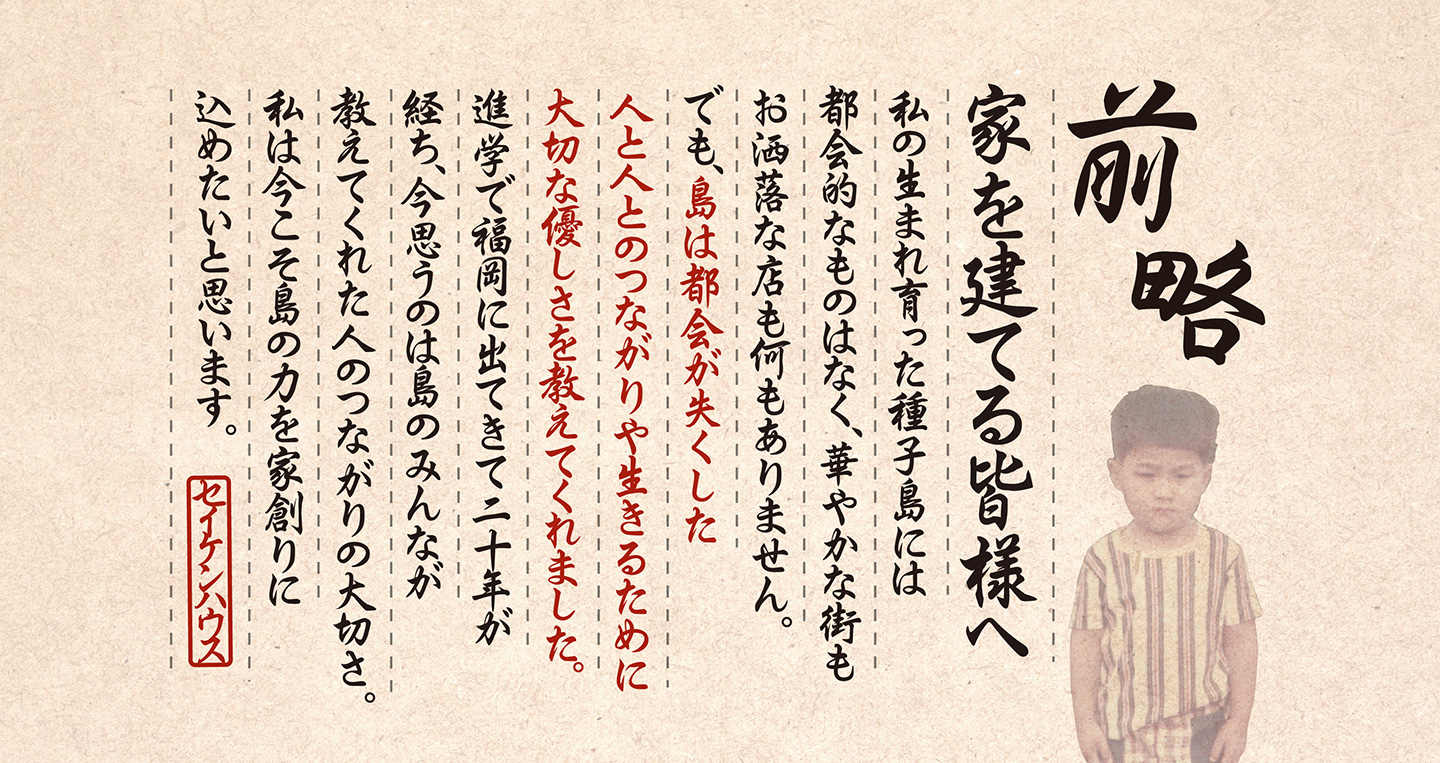 前略
家を建てる皆様へ
私の生まれ育った種子島には
都会的なものはなく、華やかな街も
お洒落な店も何もありません。
でも、島は都会が失くした
人と人とのつながりや生きるために
大切な優しさを教えてくれました。
進学で福岡に出てきて二十年が
経ち、今思うのは島のみんなが
教えてくれた人のつながりの大切さ。
私は今こそ島の力を家創りに
込めたいと思います。
セイケンハウス